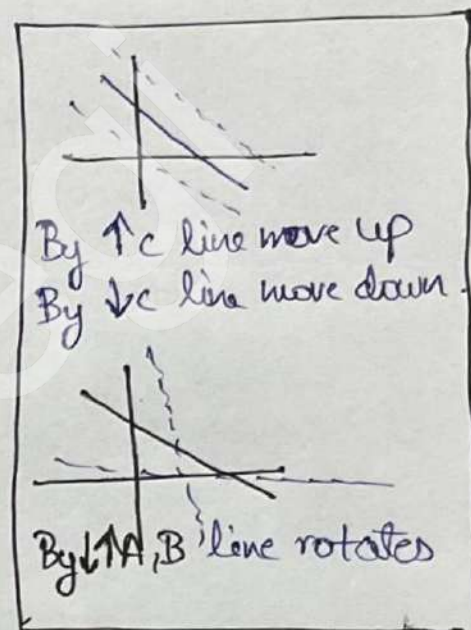 By ↑c line move up
By ↓c line move down.
By ↓↑A, B line rotates